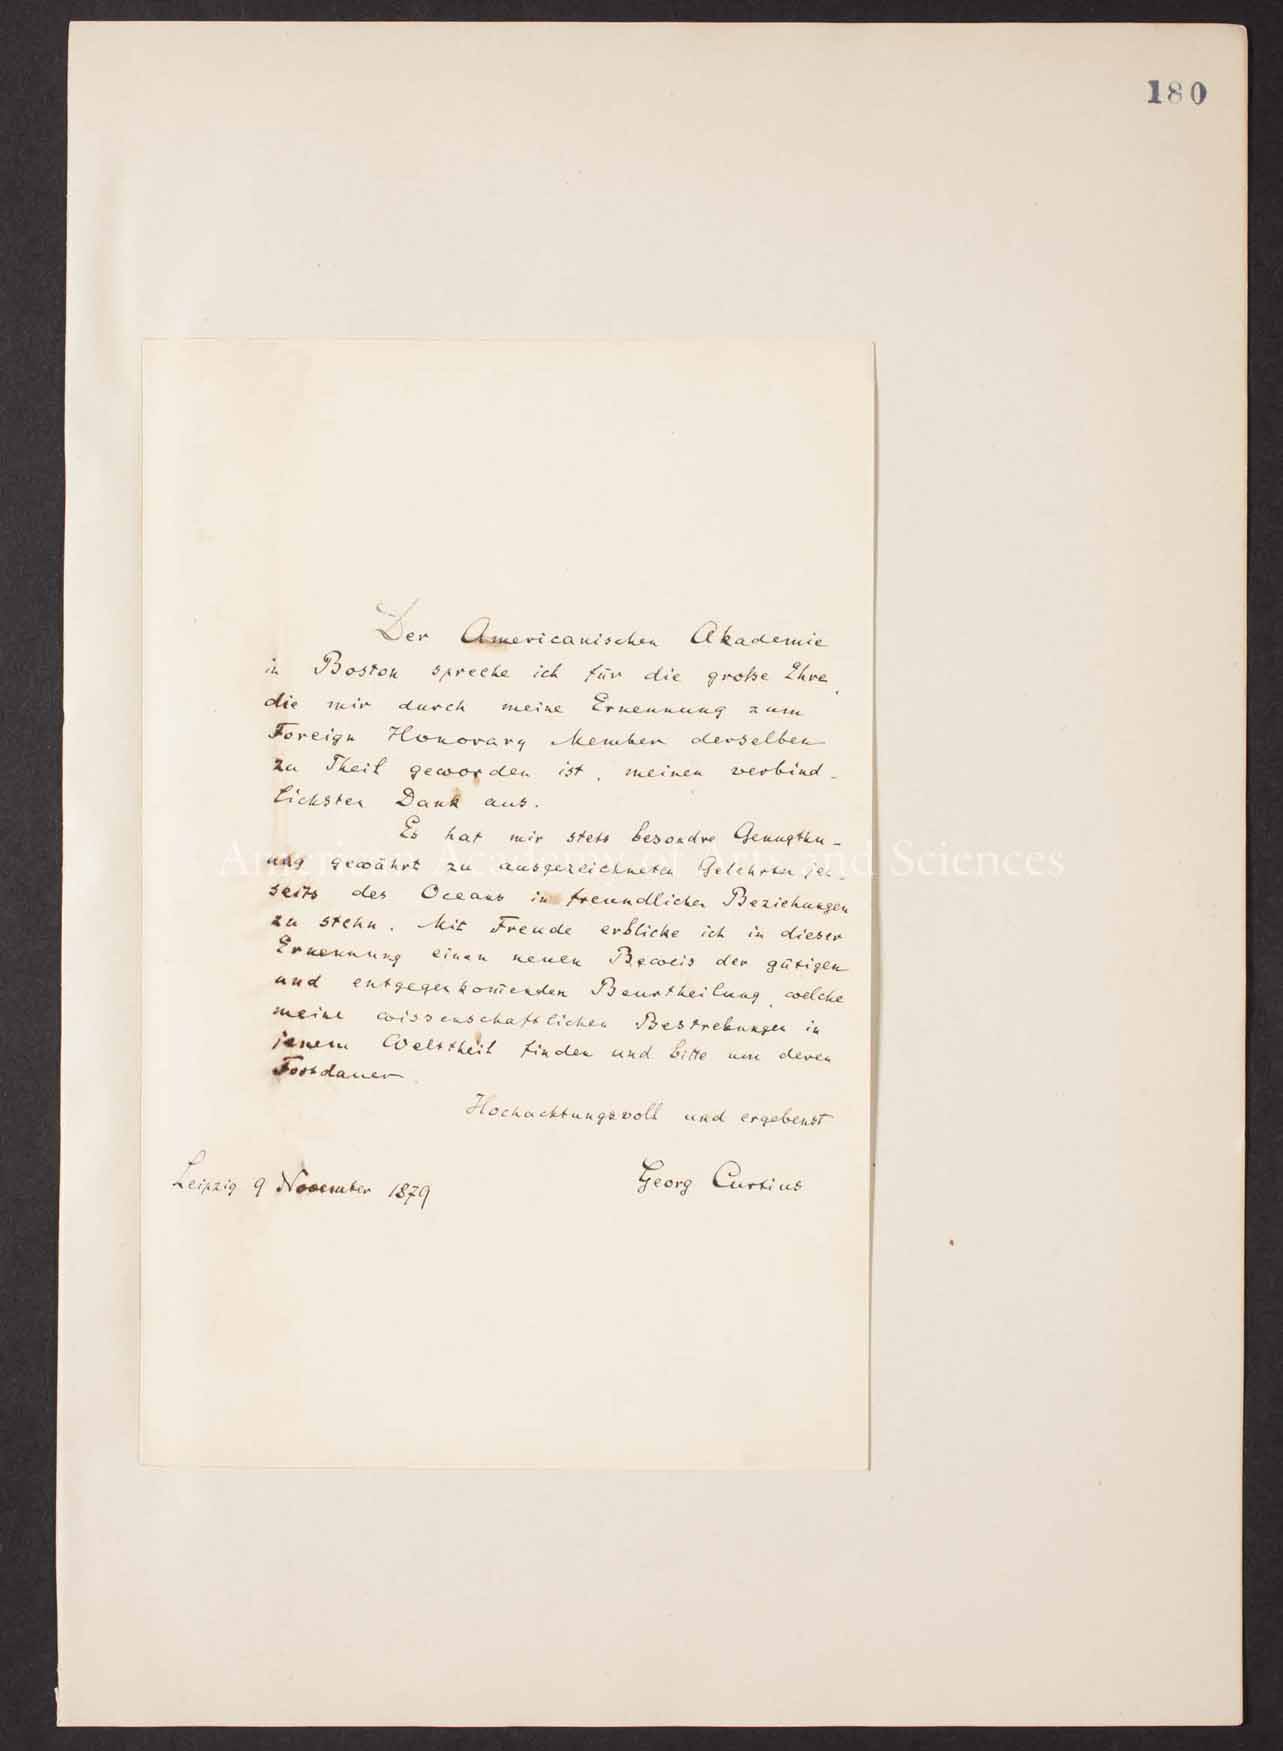 180
Der Americanischen Akademie
in Boston spreche ich für die große Ehre,
die mir durch meine Ernennung zum
Foreign Honorary Member derselben
zu Theil geworden ist, meinen verbind-
lichsten Dank aus.
Es hat mir stets besondre Genugthu-
ung gewährt zu ausgezeichneten Gelehrten jen-
American Academy of Arts and Sciences
seits des Oceans in freundlichen Beziehungen
zu stehn. Mit Freude erblicke ich in dieser
Ernennung einen neuen Beweis der gütigen
und entgegenkom̅enden Beurtheilung, welche
meine wissenschaftlichen Bestrebungen in
jenem Welttheil finden und bitte um deren
Fortdauer.
Hochachtungsvoll und ergebenst
Georg Curtius
Leipzig 9 November 1879